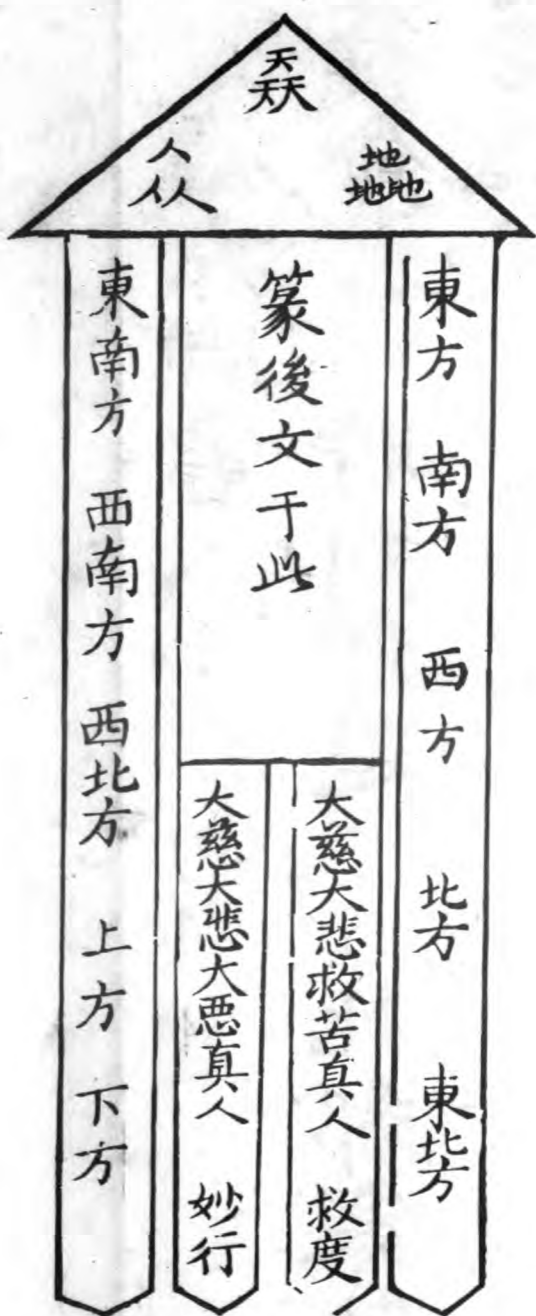 天天天
地地地
众
東方 南方 西方 北方 東北方
篆後文于此
大慈大悲救苦真人 救度
大慈大悲大悪真人 妙行
東南方 西南方 西北方 上方 下方